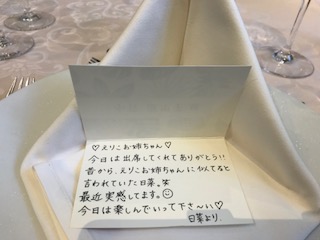 ♡えりこお姉ちゃん♡
今日は出席してくれてありがとう!!
昔から、えりこお姉ちゃんに似てると
言われていた日菜。笑
最近実感してます。☺
今日は楽しんでいって下さーい♡
日菜より。